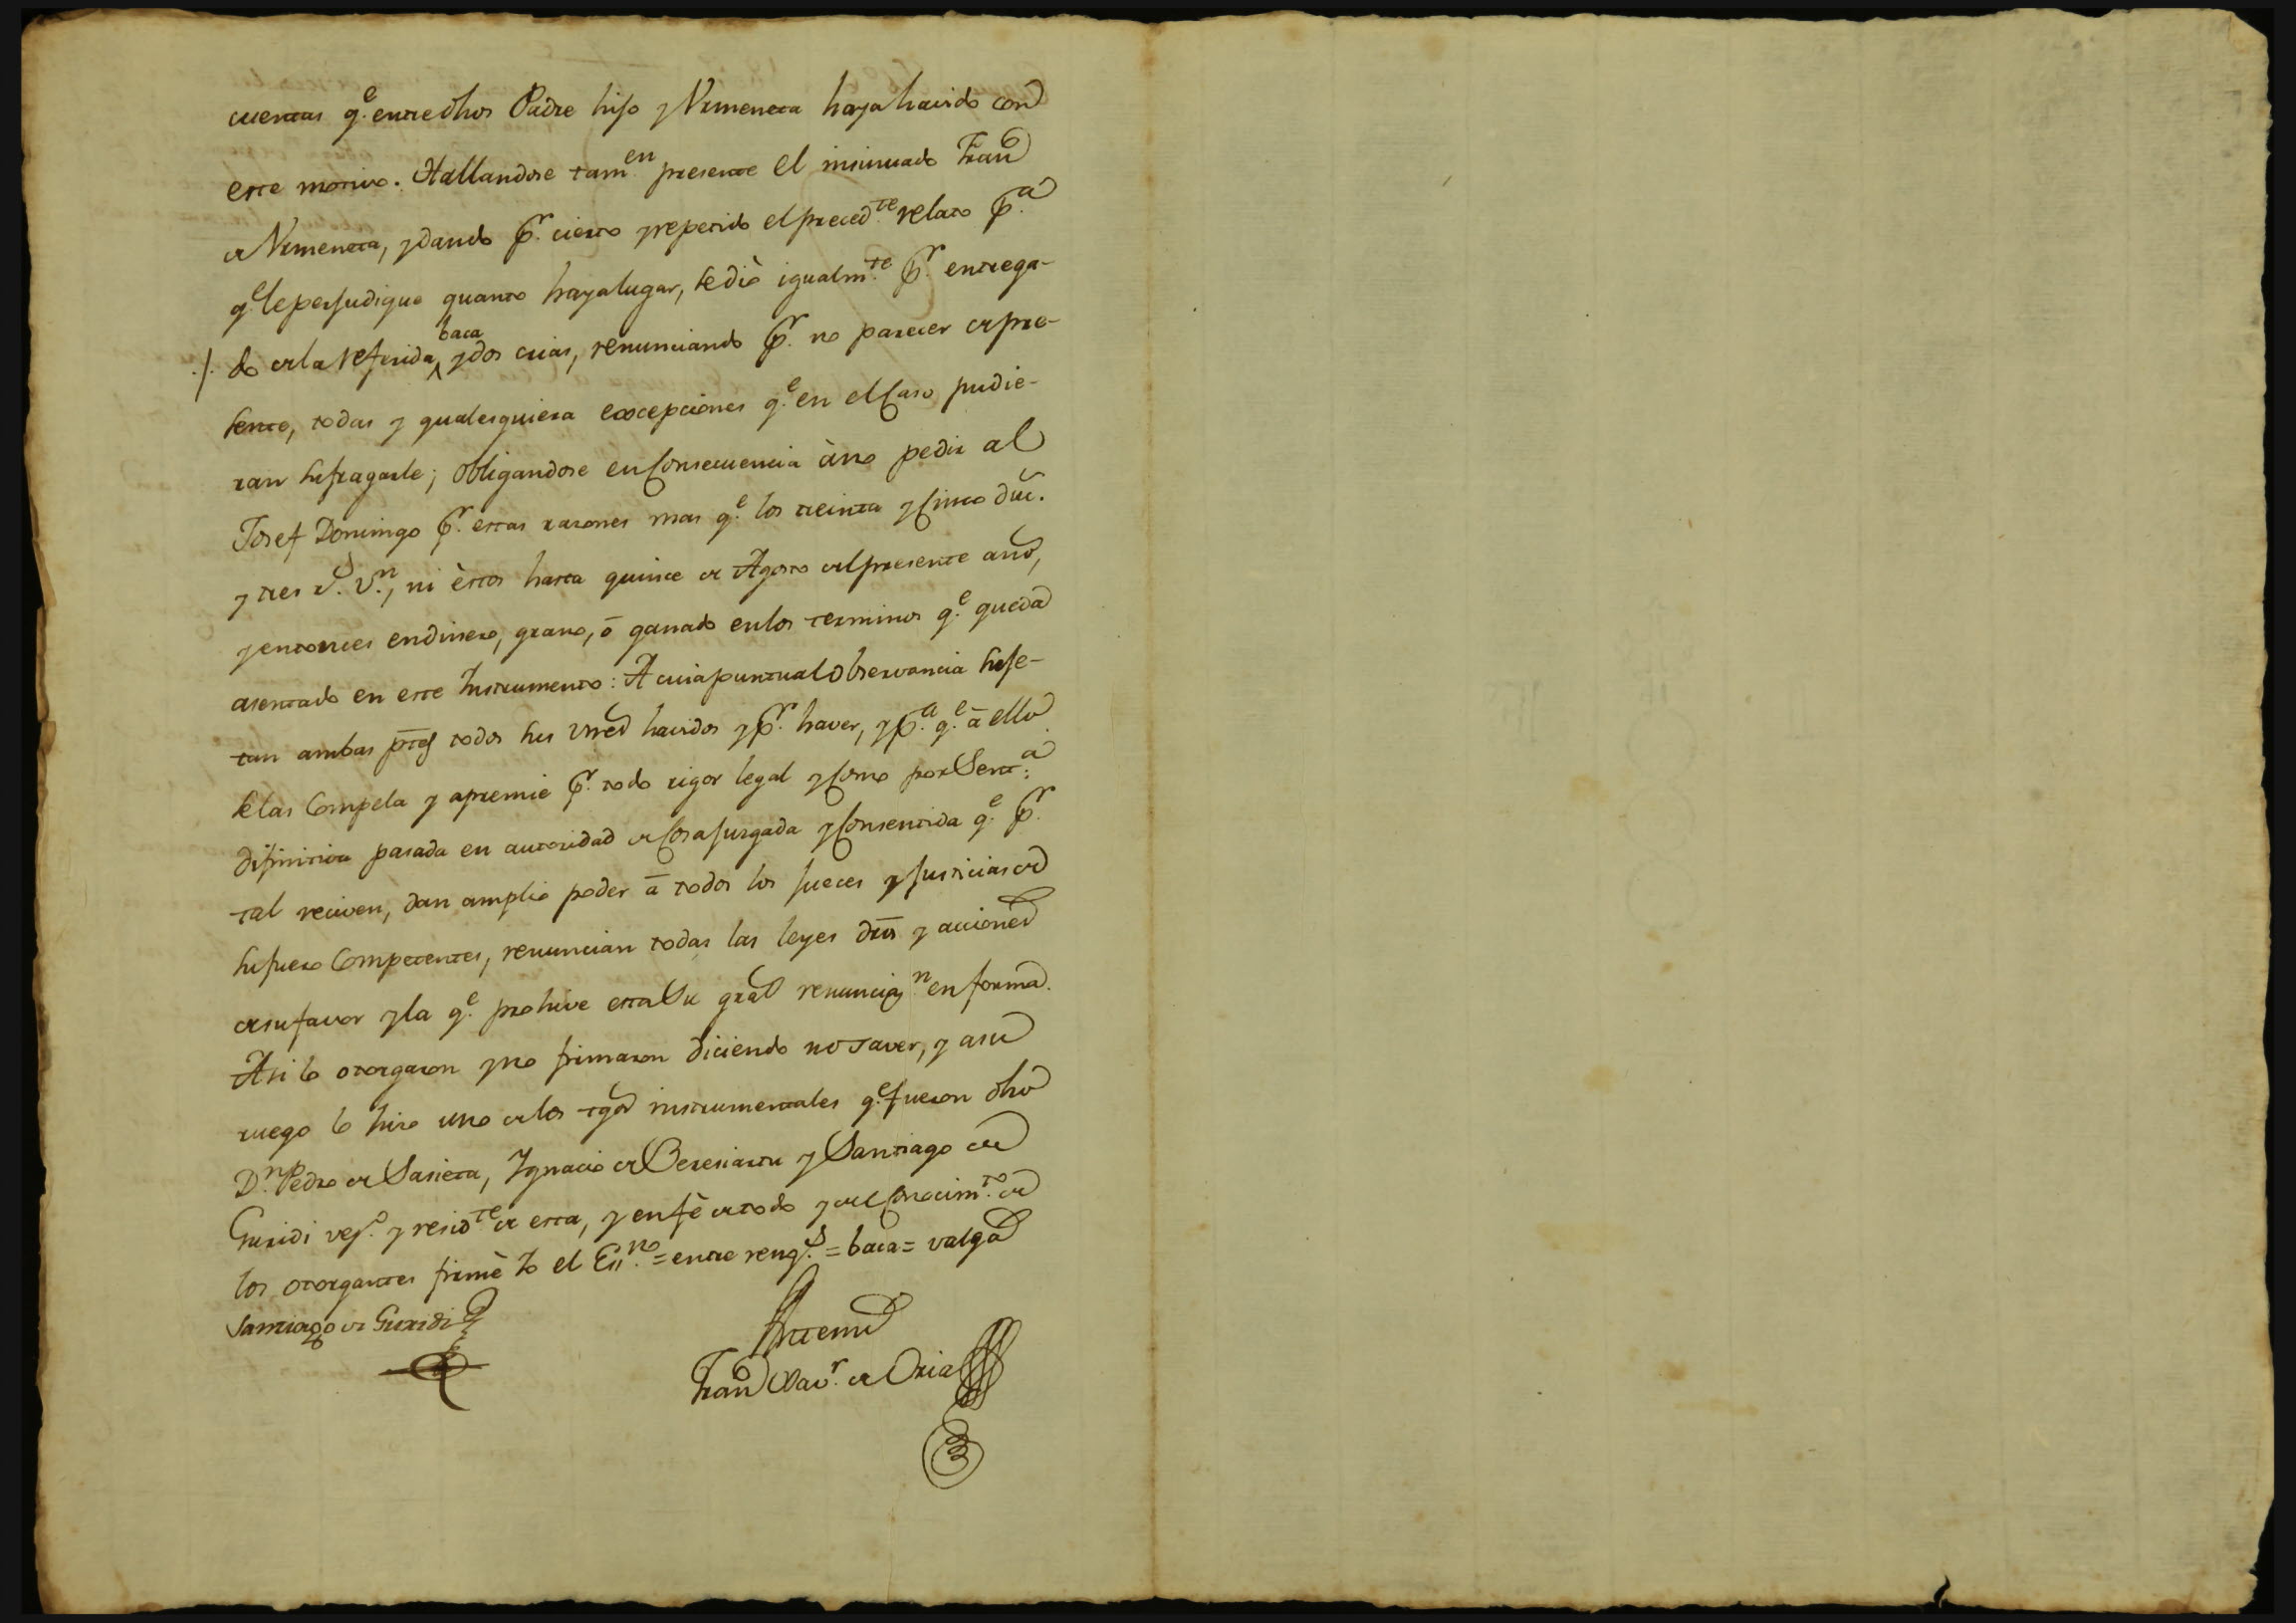 cuentas q.e entre dhos Padre hijo y Vrmeneta haya havido con
este motivo. Hallandose tam.en presente el insinuado Fran.co
de Vrmeneta, y dando p.r cierto y repetido el preced.te relato p.a
q.e le perjudique quanto haya lugar, se diò igualm.te p.r entrega-
./. do de la referida baca y dos crias, renunciando p.r no parecer de pre-
sente, todas y qualesquiera excepciones q.e en el Caso pudie-
ran sufragarle; obligandose en Consecuencia à no pedir al
Josef Domingo p.r estas razones mas q.e los treinta y Cinco duc.s
y tres r.s v.n, ni èstos hasta quince de Agosto del presente año,
y entonces en dinero, grano, ō ganado en los terminos q.e queda
asentado en este Instrumento: A cuia puntual Observancia suje-
tan ambas ptes todos sus vnes havidos y p.r haver, y p.a q.e ā ello
se las Compela y apremie p.r todo rigor legal y Como por Sent.a
difinitiva pasada en autoridad de Cosa jurgada y Consentida q.e p.r
tal reciven, dan amplio poder ā todos los jueces y justicias de
su fuero Competentes, renuncian todas las leyes dros y acciones
de su favor y la q.e prohive esta Su gral renunciaz.n en forma.
Asi lo otorgaron y no firmaron diciendo no saver, y a su
ruego lo hizo uno de los tgos instrumentales q.e fueron dho
D.n Pedro de Sasieta, Ygnacio de Beresiartu y Santiago de
Guridi vez.s y resid.tes de esta, y en fè de todo y del Conocim.to de
los otorgantes firmè Yo el Ess.no = entre reng.s = baca = valga
Santiago de Guridi
Ante mi
Fran.co Xav.r de Oria